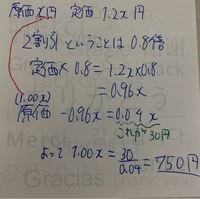 原価x円 定価1.2x円
2割引ということは0.8倍
定価×0.8=1.2x×0.8
=0.96x
(1.00x)
原価 -0.96x=0.04x
これが30円
よって 1.00x=30/0.04=750円
Merci
Gracias